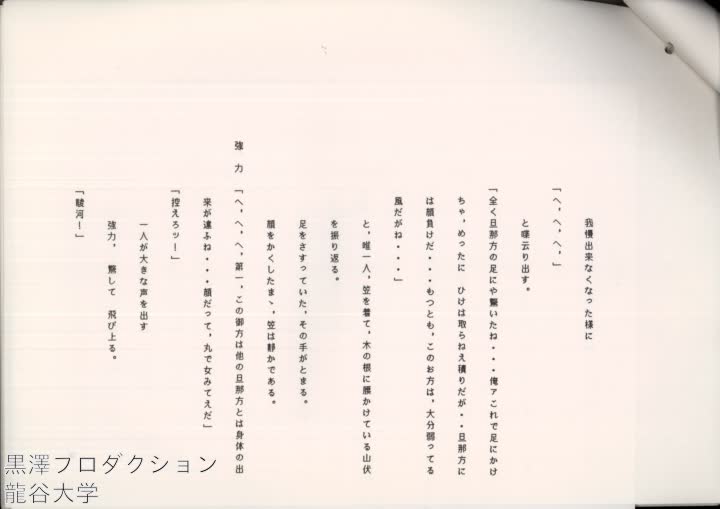 我慢出来なくなった様に
「へ，へ，へ，」
と喋云り出す。
「全く旦那方の足にや驚いたね・・・俺ァこれで足にかけ
ちゃ，めったに　ひけは取らねえ積りだが・・旦那方に
は顔負けだ・・・もつとも，このお方は，大分弱ってる
風だがね・・・」
と，唯一人，笠を着て，木の根に腰かけている山伏
を振り返る。
足をさすっていた，その手がとまる。
顔をかくしたまゝ，笠は静かである。
強　力　「へ，へ，へ，第一，この御方は他の旦那方とは身体の出
来が違ふね・・・顔だって，丸で女みてえだ」
「控えろッー」
一人が大きな声を出す
強力，　驚して　飛び上る。
「駿河！」
黒澤プロダクション
龍谷大学